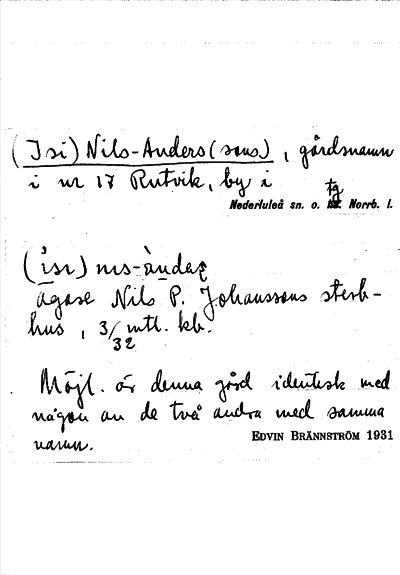 (Isi) Nils-Anders(sons), gårdsnamn
i nr 17 Rutvik, by i
Nederluleå sn. o. tg Norrb. l.
ägare Nils P. Johanssons sterb-
hus, 3/32 mtl. kb.
Möjl. är denna gård identisk med
någon av de två andra med samma
namn.
EDVIN BRÄNNSTRÖM 1931